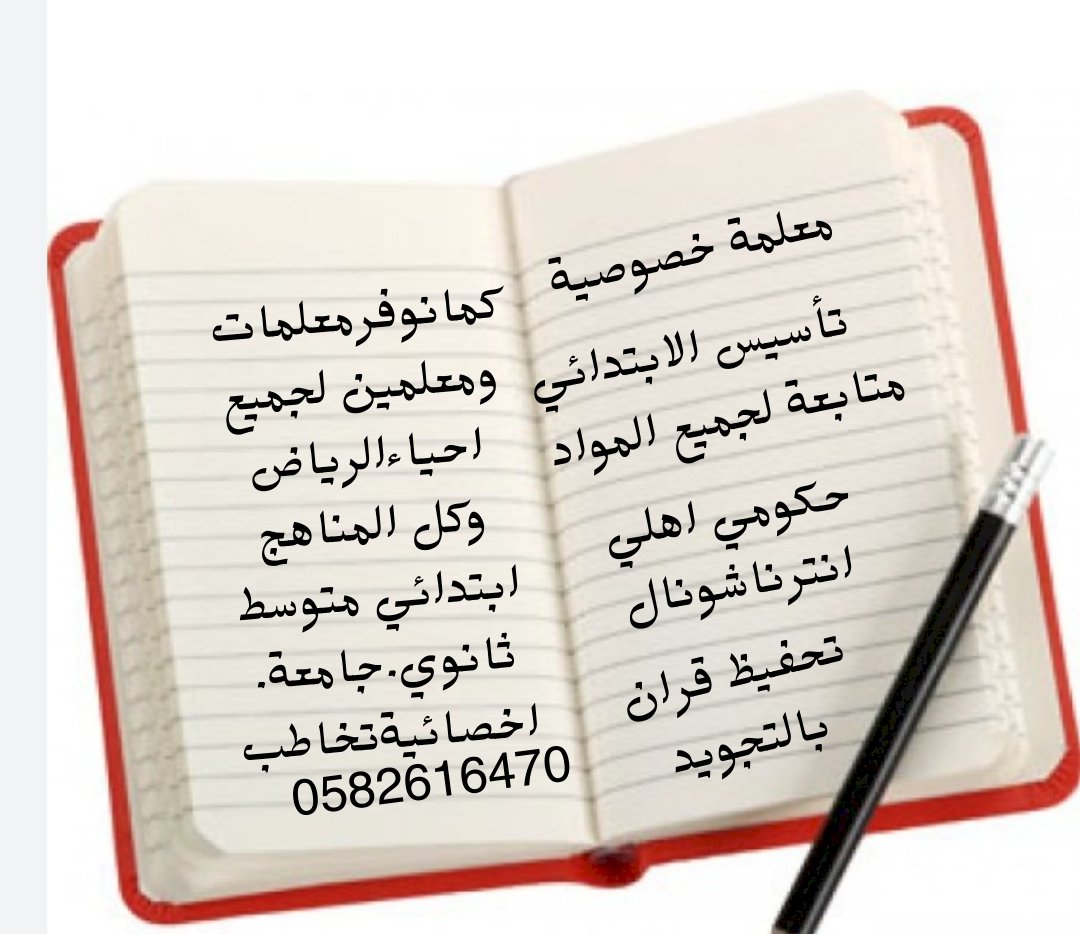 معلمة خصوصية
تأسيس الابتدائي
متابعة لجميع المواد
حكومي اهلي
انترناشونال
تحفيظ قران
بالتجويد
كما نوفرمعلمات
ومعلمين لجميع
احياءالرياض
وكل المناهج
ابتدائي متوسط
ثانوي.جامعة.
اخصائيةتخاطب
0582616470